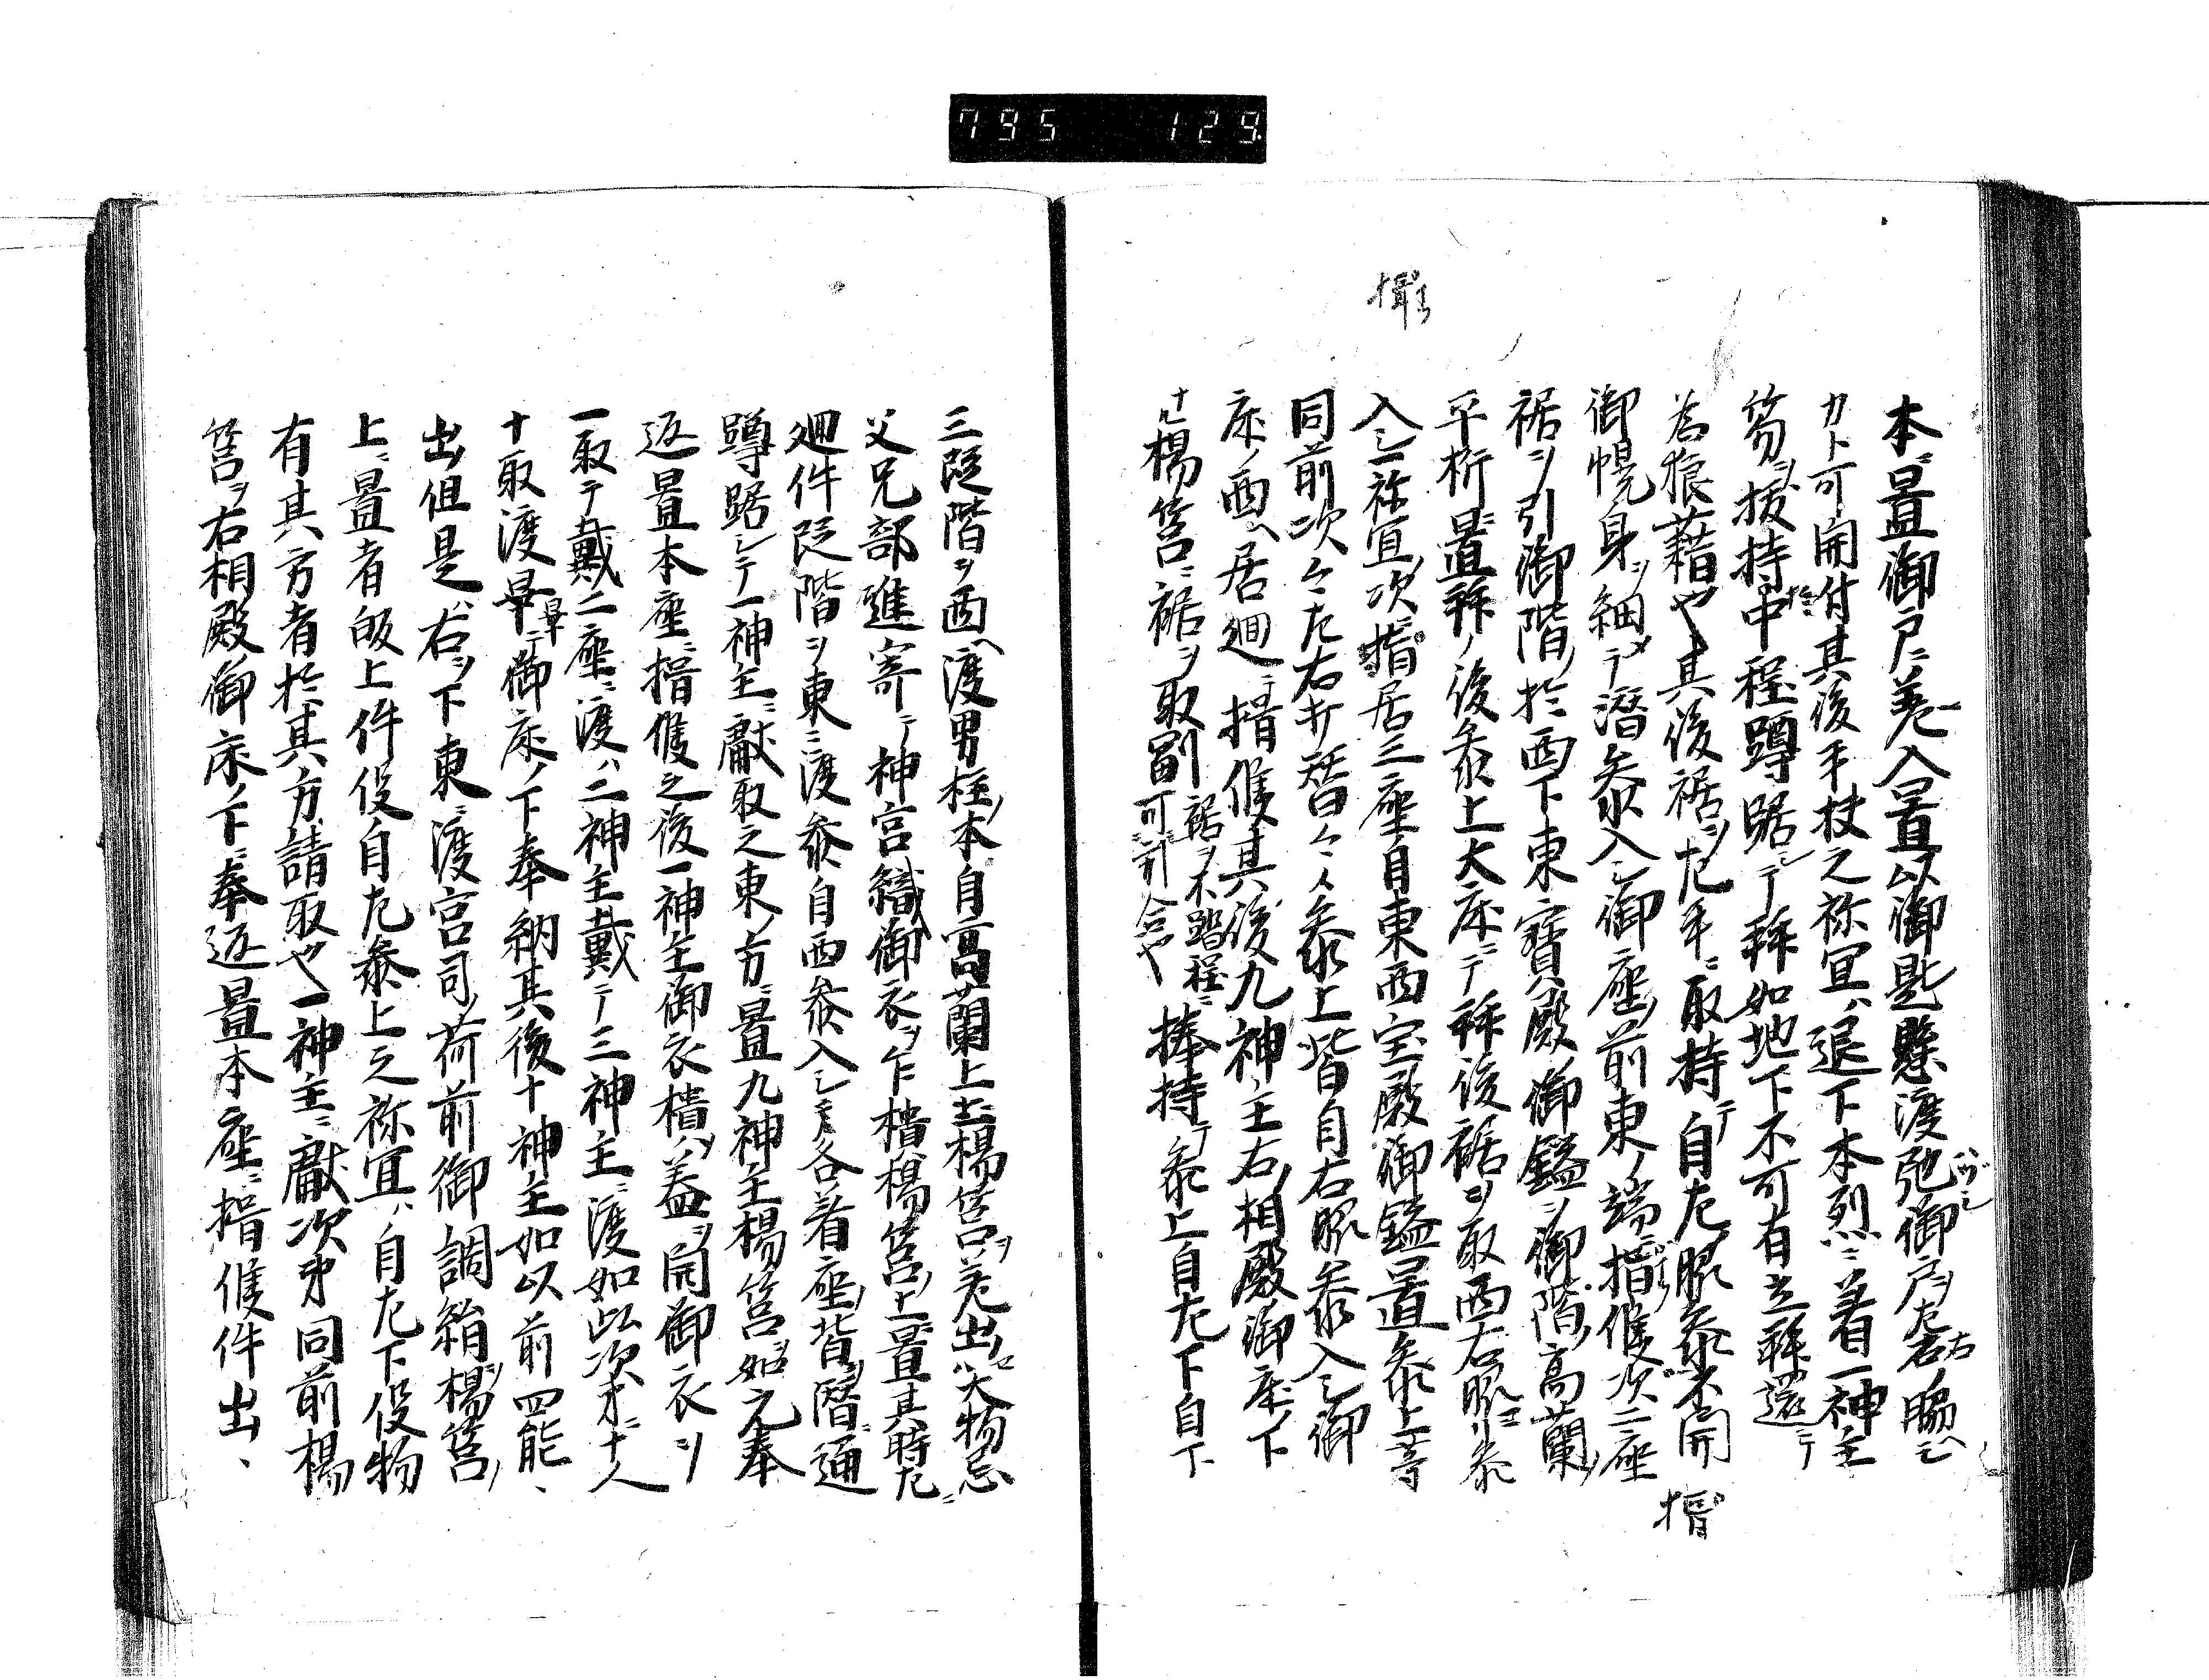 795 129
本ニ置御戸ニ差入置以御匙懸渡弛御戸ヲ左右脇ニ
カト可開付其後手杖之祢宜ハ退下本列ニ着一神主
笏ヲ披持中程蹲踞シテ拝如地下不可有立拝還テ
為狼藉也其後裾ヲ左手ニ取持テ自左脇参不開
御幌身ヲ細メテ潜参入之御座前東ノ端揖候次二座
裾ヲ引御階ノ於西下東寶殿御鎰ヲ御階ノ高蘭
平桁ニ置拝ノ後参上大床ニテ拝後裾ヲ取西右脇ヨリ参
入之一祢宜ノ次揖居三座自東西宝殿御鎰置参上等
同前次々左右ヲ替々々参上皆自右脇参入之御
床ノ西ヘ居廻ニ揖候其後九神主右ノ相殿御床下
十ハ楊筥ニ裾ヲ取副 裾ヲ不踏程ニ可計会也 捧持テ参上自左下自下
揖
揖
三段階ヲ西ヘ渡男柱ノ本自高蘭上ニ楊筥ヲ差出ハ大物忌
父兄部進寄テ神宮織御衣ヲ乍樻楊筥ノ上ニ置其時左ニ
廻件段階ヲ東ニ渡参自西参入之各着座ノ皆階通
蹲踞シテ一神主ニ獻取之東ノ方ニ置九神主楊筥如元奉
返置本座ニ揖候之後一神主御衣樻ノ蓋ヲ開御衣ヲ
一取テ戴二座ニ渡ハ二神主戴テ三神主ニ渡如此次第ニ十人
十取渡畢テ御床ノ下奉納其後十神主如以前四能、
出但是ハ右ヲ下東ニ渡宮司ノ荷前御調絹ヲ楊筥ノ
上ニ置者皈上件役自左参上之祢宜ハ自左下役物
有其方者於其方請取也一神主ニ獻次第同前楊
筥ヲ右相殿御床ノ下ニ奉返置本座ニ揖候件出、